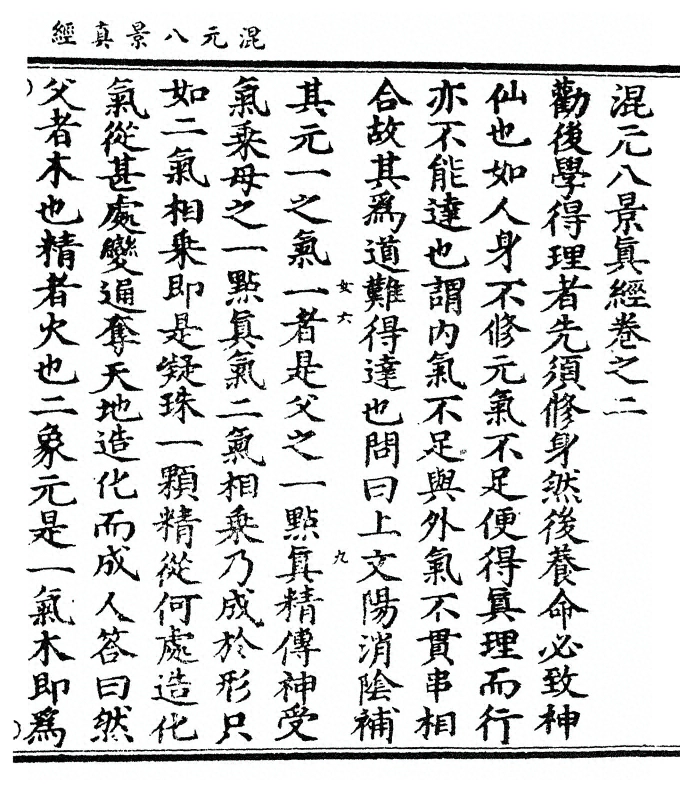 混元八景真經
混元八景眞經卷之二
勸後學得理者先須修身然後養命必致神
仙也如人身不修元氣不足便得眞理而行
亦不能達也謂內氣不足與外氣不貫串相
合故其爲道難得達也問曰上文陽消陰補
女六
九
其元一之氣一者是父之一點眞精傳神受
氣乘母之一點眞氣二氣相乘乃成於形只
如二氣相乘即是凝珠一顆精從何處造化
氣從甚處變通奪天地造化而成人答曰然
父者木也精者火也二象元是一氣木即爲